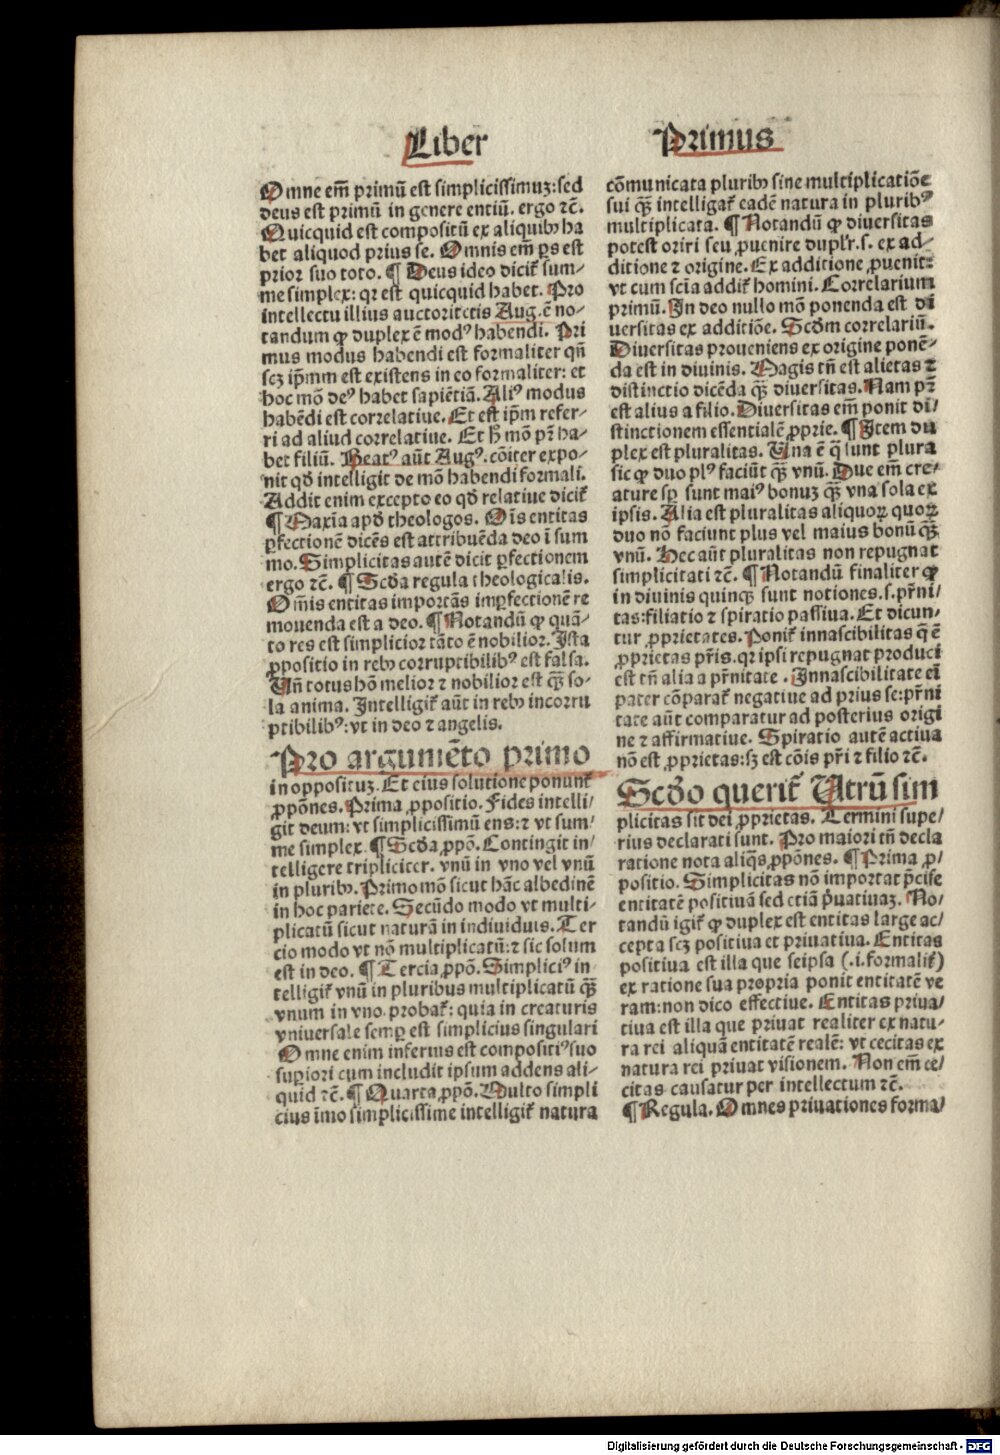 Liber
Primus
Omne em̄ primū est simplicissimuꝫ: sed
deus est primū in genere entiū. ergo ⁊c̄.
Quicquid est compositū ex aliquibꝰ ha
bet aliquod prius se. Omnis em̄ ꝑs est
prior suo toto. ¶ Deus ideo dicit̄ sum-
me simplex: qꝛ est quicquid habet. Pro
intellectu illius auctoritetis Aug. ē no-
tandum ꝙ duplex ē modꝰ habendi. Pri
mus modus habendi est formaliter qn̄
scꝫ ip̄mm est existens in eo formaliter: et
hoc mō deꝰ habet sapiētiā. Aliꝰ modus
habēdi est correlatiue. Et est ip̄m refer-
ri ad aliud correlatiue. Et h̄ mō pr̄ ha-
bet filiū. Beatꝰ aūt Augꝰ. cōiter expo-
nit qd̄ intelligit de mō habendi formali.
Addit enim excepto eo qd̄ relatiue dicit̄
¶ Maxīa apd̄ theologos. Oīs entitas
ꝑfectionē dicēs est attribuēda deo ī sum
mo. Simplicitas autē dicit ꝑfectionem
ergo ⁊c̄. ¶ Scd̄a regula theologicalis.
Om̄is entitas importās imꝑfectionē re
mouenda est a deo. ¶ Notandū ꝙ quā-
to res est simplicior tāto ē nobilior. Ista
ꝓpositio in rebꝰ corruptibilibꝰ est falsa.
Un̄ totus hō melior ⁊ nobilior est qꝫ̄ so-
la anima. Intelligit̄ aūt in rebꝰ incorru
ptibilibꝰ: vt in deo ⁊ angelis.
Pro argumēto primo
in opposituꝫ. Et eius solutione ponunt̄
ꝓpōnes. Prima ꝓpositio. Fides intelli/
git deum: vt simplicissimū ens: ⁊ vt sum/
me simplex. ¶ Scd̄a ꝓpō. Contingit in/
telligere tripliciter. vnū in vno vel vnū
in pluribꝰ. Primo mō sicut hāc albedinē
in hoc pariete. Secūdo modo vt multi-
plicatū sicut naturā in indiuiduis. Ter
cio modo vt nō multiplicatū: ⁊ sic solum
est in deo. ¶ Tercia ꝓpō. Simpliciꝰ in-
telligit̄ vnū in pluribus multiplicatū qꝫ̄
vnum in vno. probat̄: quia in creaturis
vniuersale semꝑ est simplicius singulari
Omne enim inferius est compositiꝰ suo
suꝑiori cum includit ipsum addens ali-
quid ⁊c̄. ¶ Quarta ꝓpō. Multo simpli
cius īmo simplicissime intelligit̄ natura
cōmunicata pluribꝰ sine multiplicatiōe
sui qꝫ̄ intelligat̄ eadē natura in pluribꝰ
multiplicata. ¶ Notandū ꝙ diuersitas
potest oriri seu ꝓuenire duplr̄. s. ex ad-
ditione ⁊ origine. Ex additione ꝓuenit:
vt cum scīa addit̄ homini. Correlarium
primū. In deo nullo mō ponenda est di
uersitas ex additiōe. Scd̄m correlariū.
Diuersitas proueniens ex origine ponē-
da est in diuinis. Magis tn̄ est alietas ⁊
distinctio dicēda qꝫ̄ diuersitas. Nam pr̄
est alius a filio. Diuersitas em̄ ponit di/
stinctionem essentialē ꝓprie. ¶ Item du
plex est pluralitas. Una ē q̄ sunt plura
sic ꝙ duo plꝰ faciūt qꝫ̄ vnū. Due em̄ cre/
ature sꝑ sunt maiꝰ bonuꝫ qꝫ̄ vna sola ex
ipsis. Alia est pluralitas aliquoꝝ quoꝝ
duo nō faciunt plus vel maius bonū qꝫ̄
vnū. Hec aūt pluralitas non repugnat
simplicitati ⁊c̄. ¶ Notandū finaliter ꝙ
in diuinis quinqꝫ sunt notiones. s. pr̄ni/
tas: filiatio ⁊ spiratio passiua. Et dicun-
tur ꝓprietates. Ponit̄ innascibilitas q̄ ē
ꝓprietas pr̄is. qꝛ ipsi repugnat produci
est tn̄ alia a pr̄nitate. Innascibilitate eī
pater cōparat̄ negatiue ad prius se: pr̄ni
tate aūt comparatur ad posterius origi
ne ⁊ affirmatiue. Spiratio autē actiua
nō est ꝓprietas: sꝫ est cōis pr̄i ⁊ filio ⁊c̄.
Scd̄o querit̄ Utrū sim
plicitas sit dei ꝓprietas. Termini supe/
rius declarati sunt. Pro maiori tn̄ decla
ratione nota aliq̄s ꝓpōnes. ¶ Prima ꝓ/
positio. Simplicitas nō importat p̄cise
entitatē positiuā sed etiā p̄uatiuaꝫ. No/
tandū igit̄ ꝙ duplex est entitas large ac/
cepta scꝫ positiua et priuatiua. Entitas
positiua est illa que seipsa (.i. formalit̄)
ex ratione sua propria ponit entitatē ve
ram: non dico effectiue. Entitas priua/
tiua est illa que priuat realiter ex natu-
ra rei aliquā entitatē realē: vt cecitas ex
natura rei priuat visionem. Non em̄ ce/
citas causatur per intellectum ⁊c̄.
¶ Regula. Omnes priuationes forma/
Digitalisierung gefördert durch die Deutsche Forschungsgemeinschaft - DFG